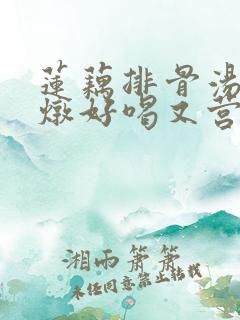 莲藕排骨汤
炖好喝又营
湘雨箫箫
未经同意禁止转载